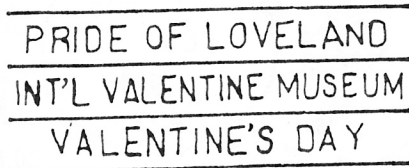 PRIDE OF LOVELAND
INT'L VALENTINE MUSEUM
VALENTINE'S DAY